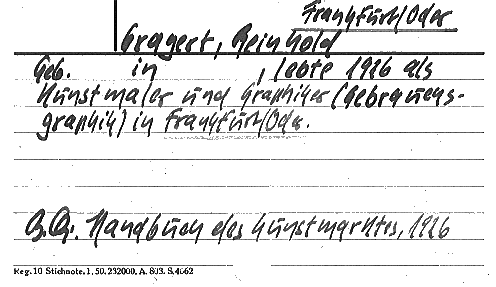 Frankfurt/Oder
Gragert, Reinhold
Geb. in , lebte 1926 als
Kunstmaler und Graphiker (Gebrauchs-
graphik) in Frankfurt/Oder.
Handbuch des Kunstmarktes, 1926
Reg. 10 Stichnote, 1, 50. 232000, A. 803. S. 4662